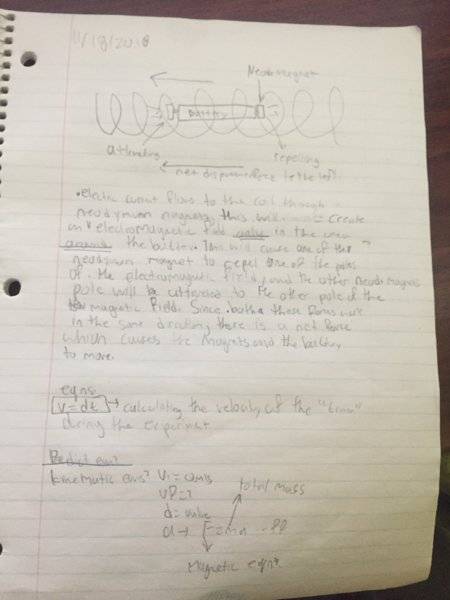 11/18/2018
Neodymagnet
Battery
attracting
repelling
net disp
force to the left
• electric current flows to the coil though
neodymium magnets, thus will create
an electromagnetic field only in the area
around the battery. This will cause one of the
neodymium magnet to repel one of the poles
of the electromagnetic field, and the other neody magnets
pole will be attracted to the other pole of the
magnetic field. Since both these forces work
in the same direction there is a net force
which causes the magnets and the battery
to move.
eqns
v=dt → calculating the velocity of the "train"
during the experiment
kinematic eqns? Vi = 0m/s
VF=?
d= value
a→ F=ma
total mass
Magnetic eqns